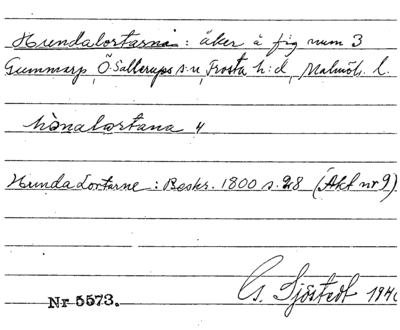 Hundalortarna: åker å fig num 3
Gummarp, Ö Sallerups s:n, Frosta h:d, Malmöh. l.
hònalortana 4
Hunda Lortarne: Beskr. 1800 s. 28 (Akt nr 9).
Nr 5573.
G. Sjöstedt 1940